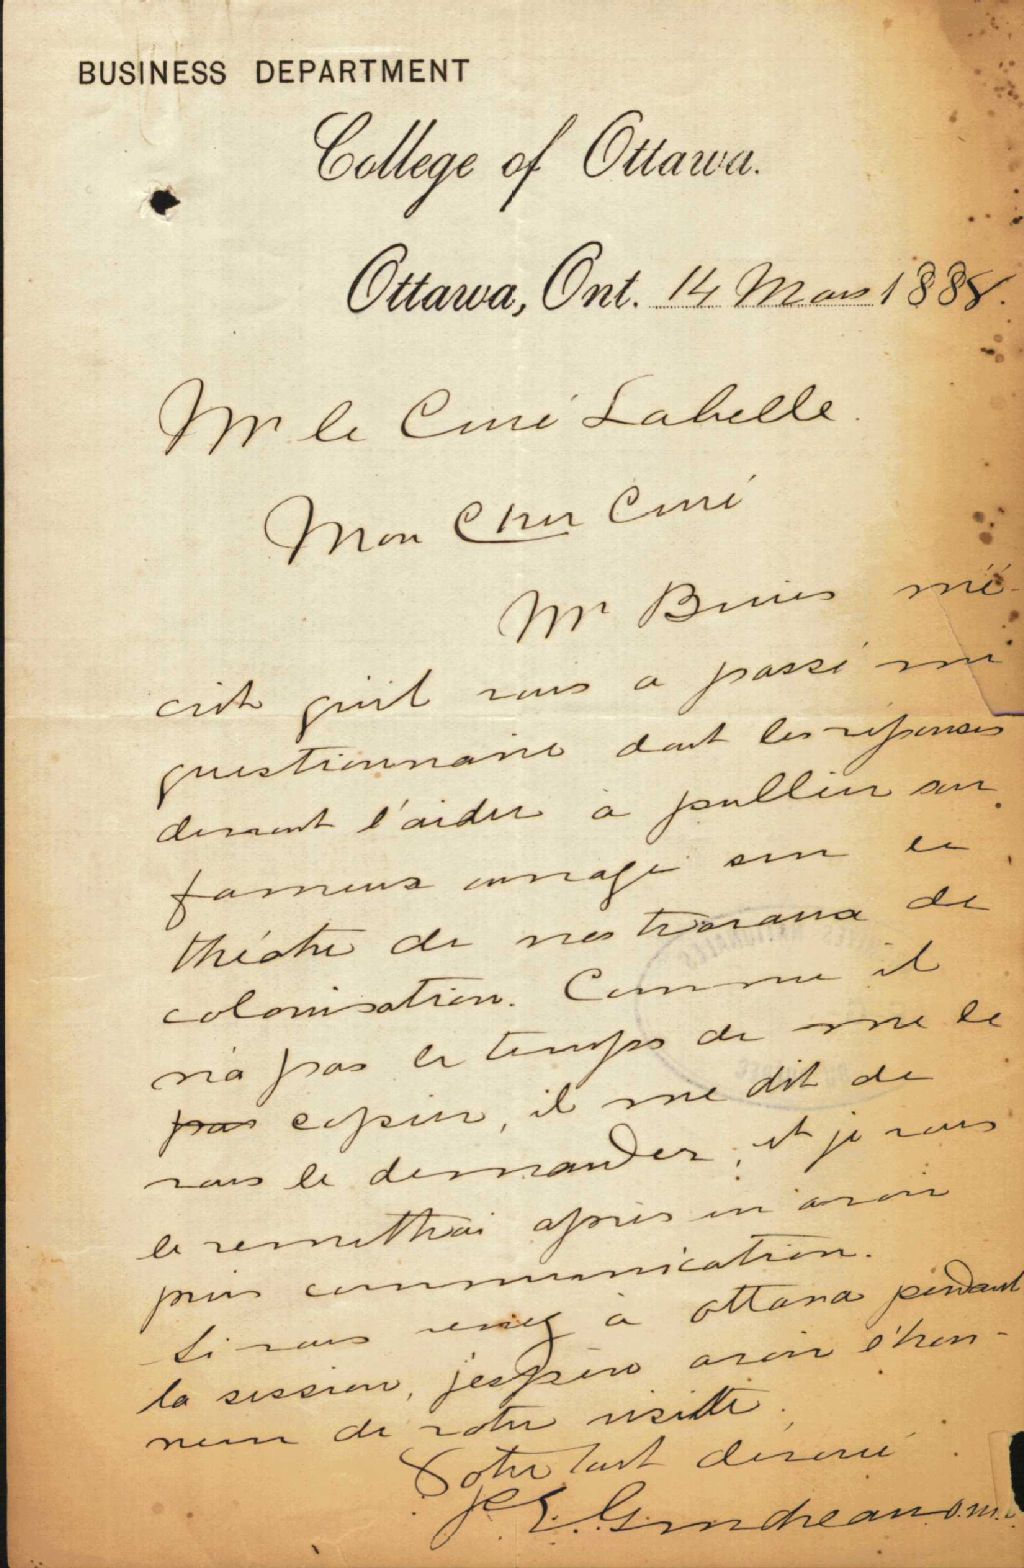 BUSINESS DEPARTMENT
College of Ottawa.
Ottawa, Ont. 14 Mars 1888.
Mr le Curé Labelle.
Mon Cher Curé
Mr Buies m'é-
crit qu'il vous a passé un
questionnaire dont les réponses
devront l'aider à publier son
fameux ouvrage sur le
théâtre de nos travaux de
colonisation. Comme il
n'a pas le temps de me le
pas copier, il me dit de
vous le demander, et je vous
le remettrai après en avoir
pris communication.
Si vous venez à Ottawa pendant
la session, j'espère avoir l'hon-
neur de votre visite.
Votre tout dévoué
P. E. Gendreau o.m.i.
ARCHIVES NATIONALES
QUÉBEC